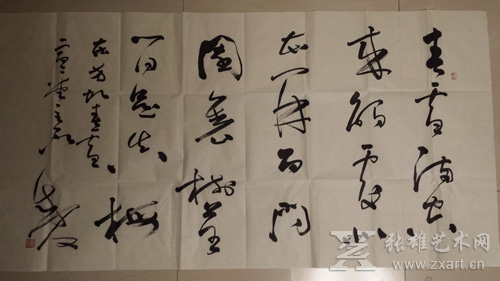 春雪满空
来觸處似
花開不知
園裏樹若
个是真梅
东方虬春雪
张雄艺术网
www.zxart.cn